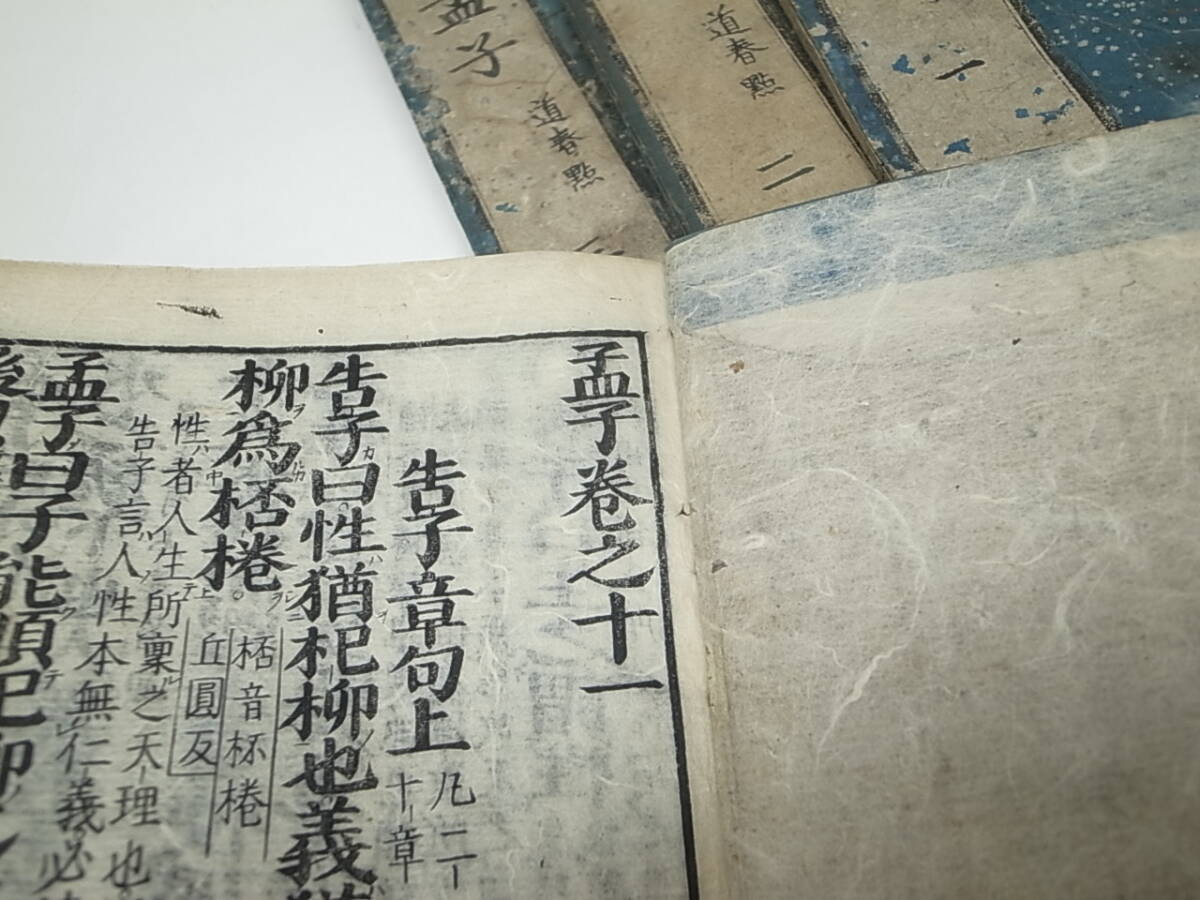 孟子
道春點
道春點
二
一
孟子卷之十一
告子章句上
凡二十章
告子曰性猶杞柳也義猶
柳爲桮棬。
桮音杯棬
丘圓反
性者人生所稟之天理也
告子言人性本無仁義必
孟子曰子能順杞柳